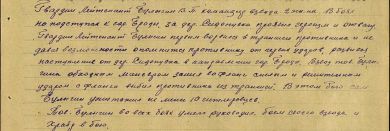 Гвардии Лейтенант Булыгин В.П. командир взвода 2 ж-на. В боях
на подступах к гор. Броды, за дер. Сидоровка проявил героизм и отвагу.
Гвардии Лейтенант Булыгин первым ворвался в траншеи противника и не
давая возможности опомниться противнику от первых ударов, развивал
наступление от дер. Сидоровка в направлении гор. Броды. Взвод тов. Булы-
гина обходным маневром зашел во фланг и решительным
ударом с фланга выбил противника из траншей. В этом бою сам
Булыгин уничтожил не менее 10 гитлеровцев.
Тов. Булыгин во всех боях умело руководил боем своего взвода и
храбр в бою.